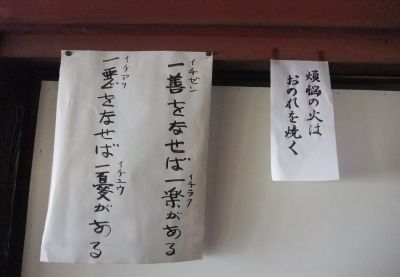 煩悩の火は
おのれを焼く
一善をなせば一楽がある
イチゼン
イチラク
一悪をなせば一憂がある
イチアク
イチユウ